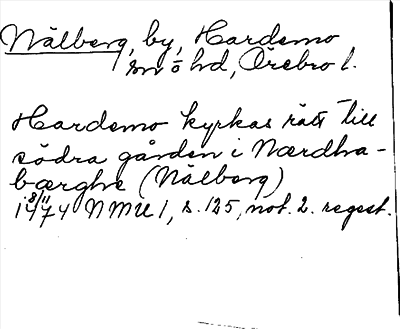 Nälberg, by, Hardemo
sn o hd, Örebro l.
Hardemo kyrkas rätt till
södra gården i Nærdha-
bærghe (Nälberg)
8/11 1474 NMU 1, s. 125, not. 2. regest.